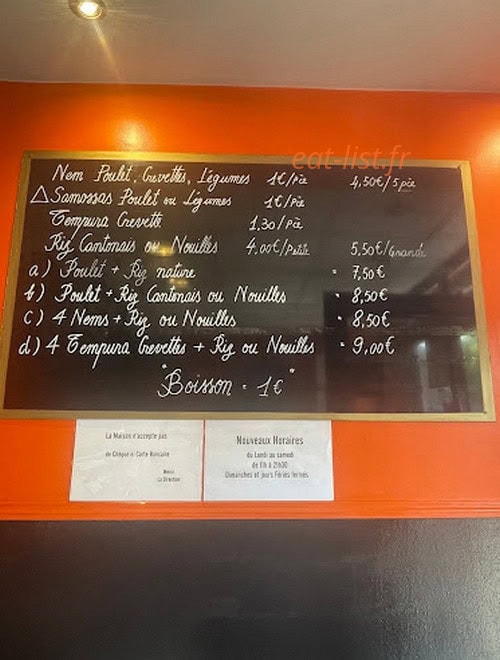 eat-list.fr
Nem Poulet, Crevettes, Légumes 1€/Pce 4,50€/5 pce
△ Samossas Poulet ou Légumes 1€/Pce
Tempura Crevette 1,30/Pce
Riz Cantonais ou Nouilles 4,00€/Petite 5,50€/Grande
a) Poulet + Riz nature = 7,50€
b) Poulet + Riz Cantonais ou Nouilles = 8,50€
c) 4 Nems + Riz ou Nouilles = 8,50€
d) 4 Tempura Crevettes + Riz ou Nouilles = 9,00€
"Boisson = 1€"
La Maison n'accepte pas
de Chèque ni Carte Bancaire
Merci
La Direction
Nouveaux Horaires
du Lundi au samedi
de 11h à 21h30
Dimanches et jours Fériés fermés